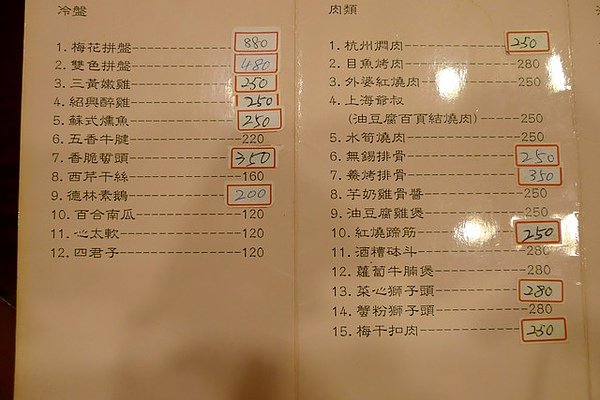 冷盤
1. 梅花拼盤 880
2. 雙色拼盤 480
3. 三黃嫩雞 250
4. 紹興醉雞 250
5. 蘇式燻魚 250
6. 五香牛腱 220
7. 香脆蜇頭 350
8. 西芹干絲 160
9. 德林素鵝 200
10. 百合南瓜 120
11. 心太軟 120
12. 四君子 120
肉類
1. 杭州燜肉 250
2. 目魚烤肉 280
3. 外婆紅燒肉 250
4. 上海爺叔
(油豆腐百頁結燒肉) 250
5. 水筍燒肉 250
6. 無錫排骨 250
7. 羹烤排骨 350
8. 芋奶雞骨醬 250
9. 油豆腐雞煲 250
10. 紅燒蹄筋 250
11. 酒糟砵斗 280
12. 蘿蔔牛腩煲 280
13. 菜心獅子頭 280
14. 蟹粉獅子頭 280
15. 梅干扣肉 250